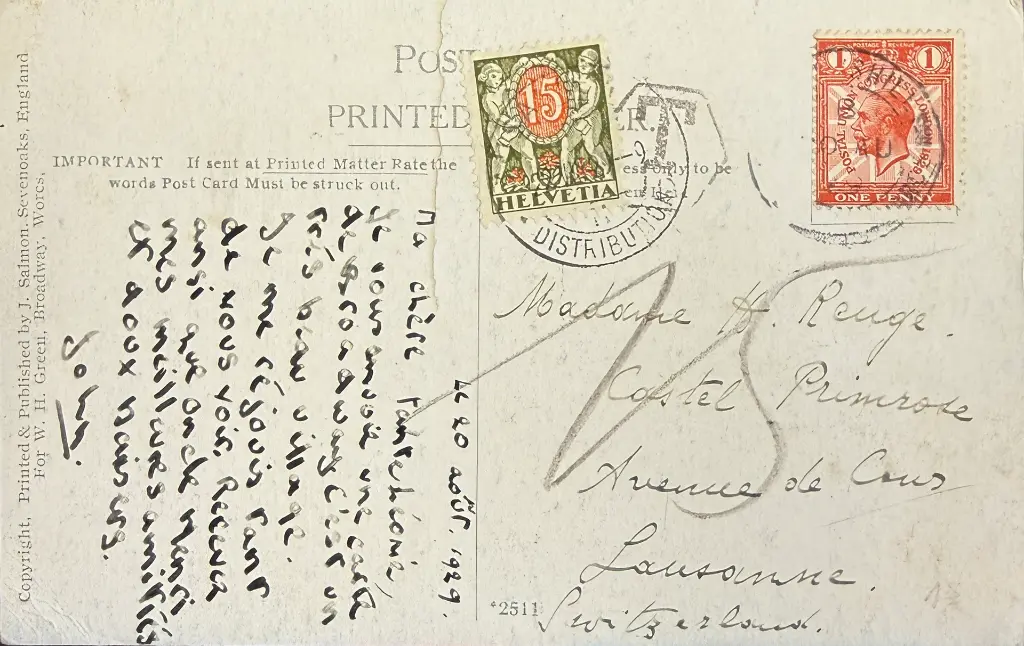 POST
PRINTED
ER.
IMPORTANT If sent at Printed Matter Rate the
ess only to be
words Post Card Must be struck out.
15
HELVETIA
DISTRIBUTION
T
POSTAGE REVENUE
1 1
POSTAL UNION CONGRESS LONDON 1929
ONE PENNY
Copyright, Printed & Published by J. Salmon, Sevenoaks, England
For W. H. Green, Broadway, Worcs,
Le 20 août, 1929.
Ma chère tante
Je vous envoie une carte
de Broadway C'est un
très beau village.
Je me réjouis tant
de vous voir. Recevez
ainsi que oncle Henri
mes meilleures amitiés
et doux baisers.
John.
15
Madame H. Renge.
Castel Primrose
Avenue de Cour
Lausanne.
Switzerland.
*2511